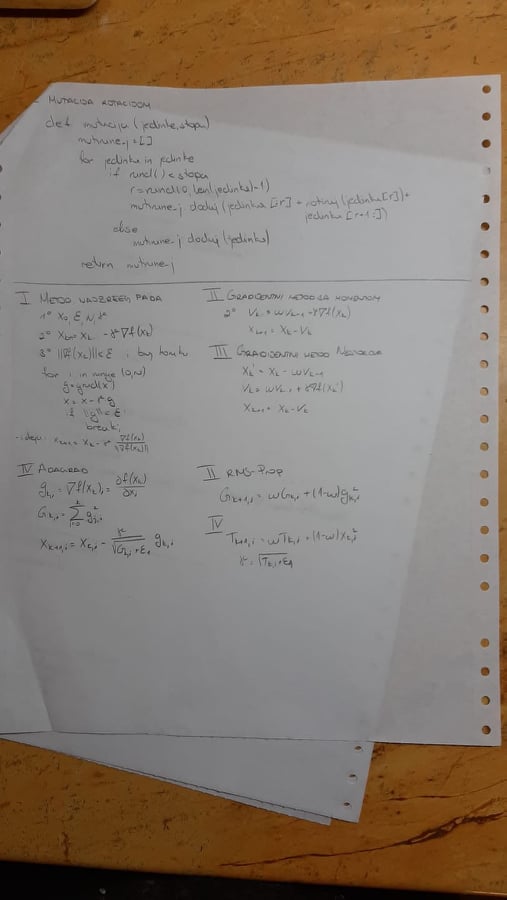 - MUTACIJA ROTACIJOM
def mutacija (jedinke, stopa)
mutirane_j = []
for jedinka in jedinke
if rand() < stopa
r = rand(0, len(jedinka)-1)
mutirane_j dodaj (jedinka [:r] + rotiraj (jedinka[r])+
jedinka [r+1:])
else
mutirane_j dodaj (jedinka)
return mutirane_j
I METOD NAJBRŽEG PADA
1° X₀, ε, N, γ
2° Xₖ₊₁ = Xₖ - γ∇f(xₖ)
3° ||∇f(xₖ)|| < ε i
for i in range (0,N)
g = grad(x)
x = x - γ g
if ||g|| < ε:
break;
-ideja: xₖ₊₁ = xₖ - γ ∇f(xₖ)/||∇f(xₖ)||
II GRADIJENTNI METOD SA MOMENTOM
2° Vₖ = ωVₖ₋₁ + γ∇f(xₖ)
Xₖ₊₁ = Xₖ - Vₖ
III GRADIJENTNI METOD NESTEROVA
Xₖ' = Xₖ - ωVₖ₋₁
Vₖ = ωVₖ₋₁ + γ∇f(xₖ')
Xₖ₊₁ = Xₖ - Vₖ
IV ADAGRAD
gₖ,ᵢ = ∇f(xₖ)ᵢ = ∂f(xₖ)/∂xᵢ
Gₖ,ᵢ = Σ gⱼ,ᵢ²
Xₖ₊₁,ᵢ = Xₖ,ᵢ - γ/√(Gₖ,ᵢ + ε₁) gₖ,ᵢ
II RMS-Prop
Gₖ₊₁,ᵢ = ωGₖ,ᵢ + (1-ω)gₖ,ᵢ²
IV
Tₖ₊₁,ᵢ = ωTₖ,ᵢ + (1-ω)Xₖ,ᵢ²
γ = √(Tₖ,ᵢ + ε₁)